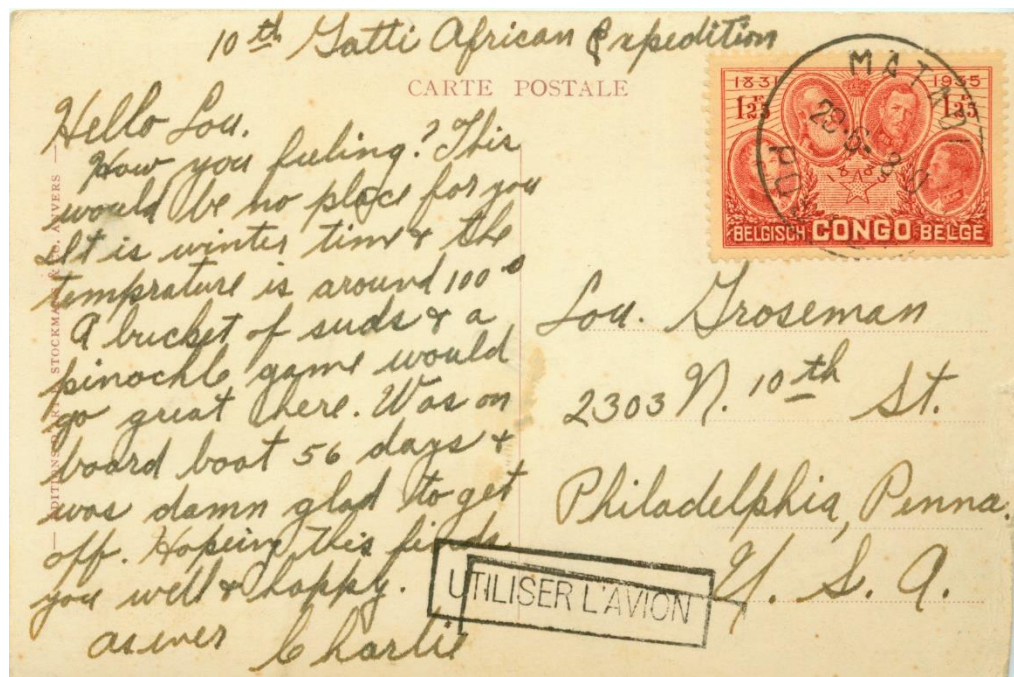 10th Gatti African Expedition
CARTE POSTALE
Hello Lou.
How you feeling? This
would be no place for you
It is winter time & the
temprature is around 100°
A bucket of suds & a
pinochle game would
go great here. Was on
board boat 56 days &
was damn glad to get
off. Hoping this finds
you well & happy.
as ever Charlie
1831 1935
1F25 1F25
BELGISCH CONGO BELGE
MATADI
Lou. Groseman
2303 N. 10th St.
Philadelphia, Penna.
U. S. A.
UTILISER L'AVION